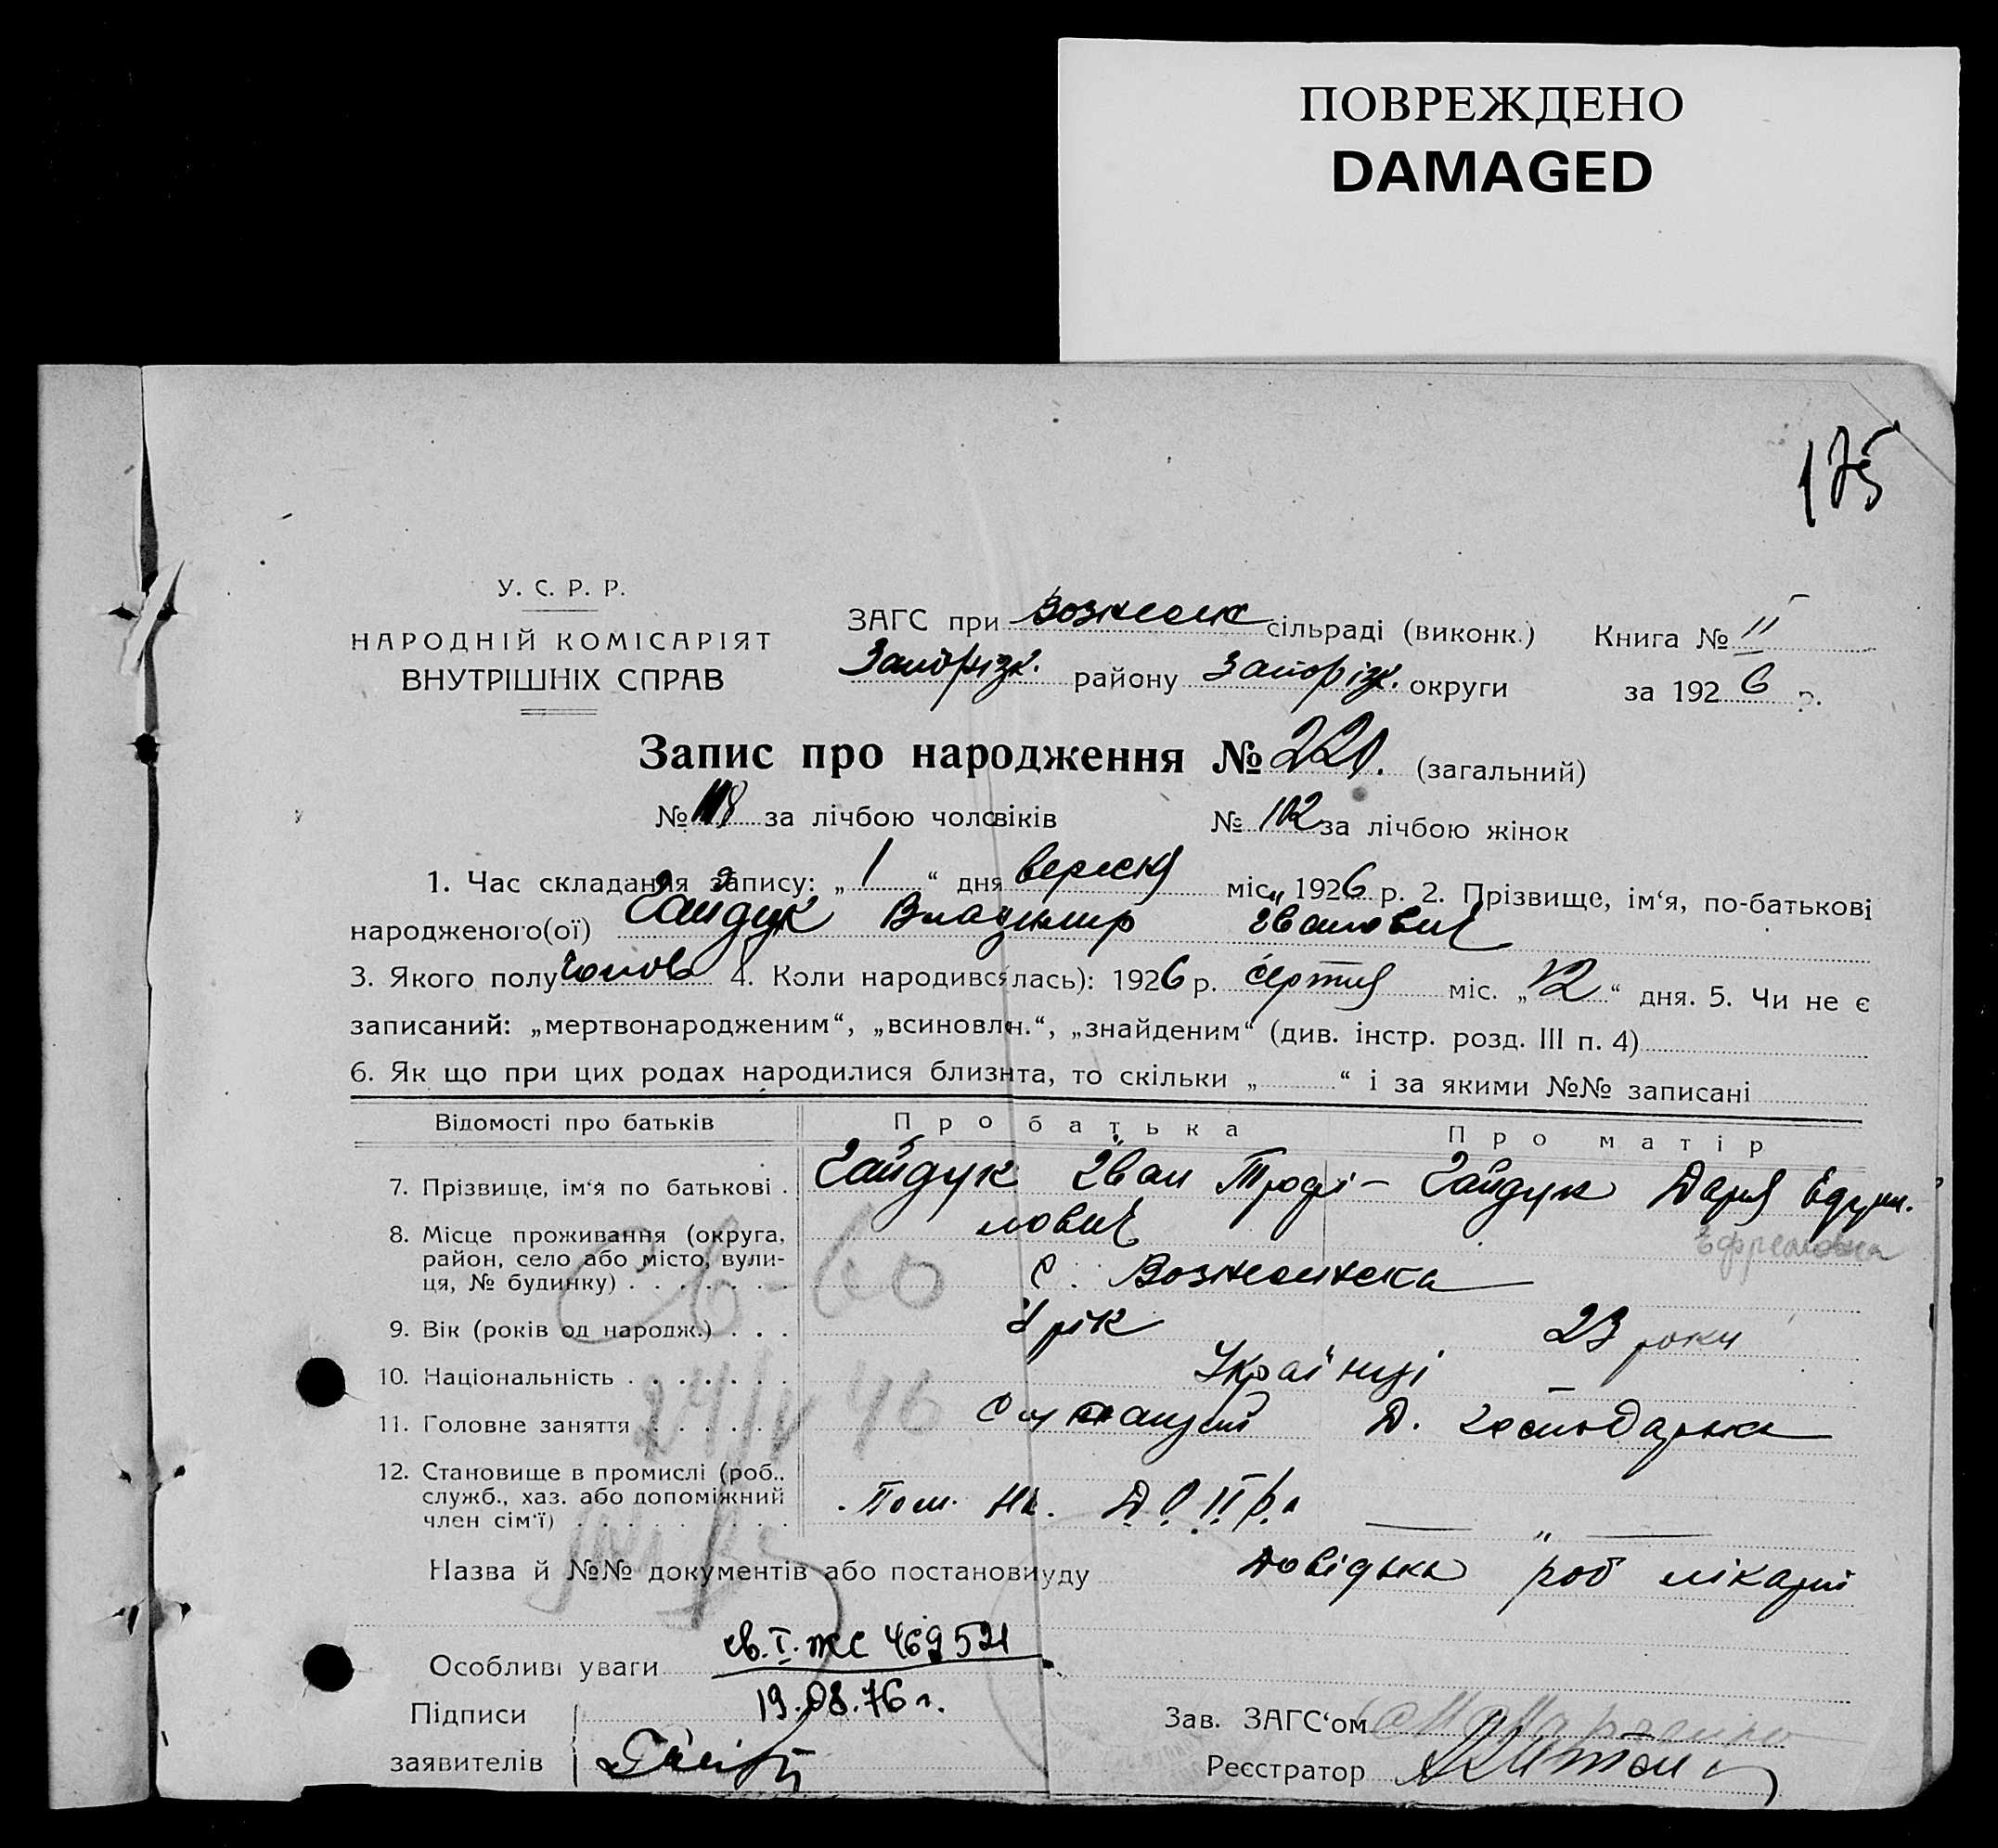 ПОВРЕЖДЕНО
DAMAGED
175
У. С. Р. Р.
НАРОДНІЙ КОМІСАРІЯТ
ВНУТРІШНІХ СПРАВ
ЗАГС при Вознесенск сільраді (виконк.) Книга № II
Запоріжк. району Запоріжк. округи за 1926 р.
Запис про народження № 220. (загальний)
№ 118 за лічбою чоловіків № 102 за лічбою жінок
1. Час складання запису: „1“ дня вересня міс. 1926 р. 2. Прізвище, ім‘я, по-батькові
народженого(ої) Гайдук Владимир Іванович
3. Якого полу чолов 4. Коли народився(лась): 1926 р. серпня міс. „12“ дня. 5. Чи не є
записаний: „мертвонародженим“, „всиновлен.“, „знайденим“ (див. інстр. розд. III п. 4)
6. Як що при цих родах народилися близнта, то скільки „ “ і за якими №№ записані
Відомості про батьків Про батька Про матір
7. Прізвище, ім‘я по батькові . Гайдук Іван Трофі- Гайдук Дарія Ефрем.
мович Ефремовна
8. Місце проживання (округа,
район, село або місто, вули-
ця, № будинку) . . . . . . . с. Вознесенска
9. Вік (років од народж.) . . . рік 23 роки
10. Національність . . . . . . . Українці
11. Головне заняття . . . . . . Д. господарка
12. Становище в промислі (роб..
служб., хаз. або допоміжний
член сім‘ї) . . . . . . . . . Пом. На. „
24/IV 46
Назва й №№ документів або постанови уду Довідка роб лікарні
Особливі уваги св. I. ЖС 469521
19.08.76 г.
Підписи
заявителів
Зав. ЗАГС‘ом
Реєстратор